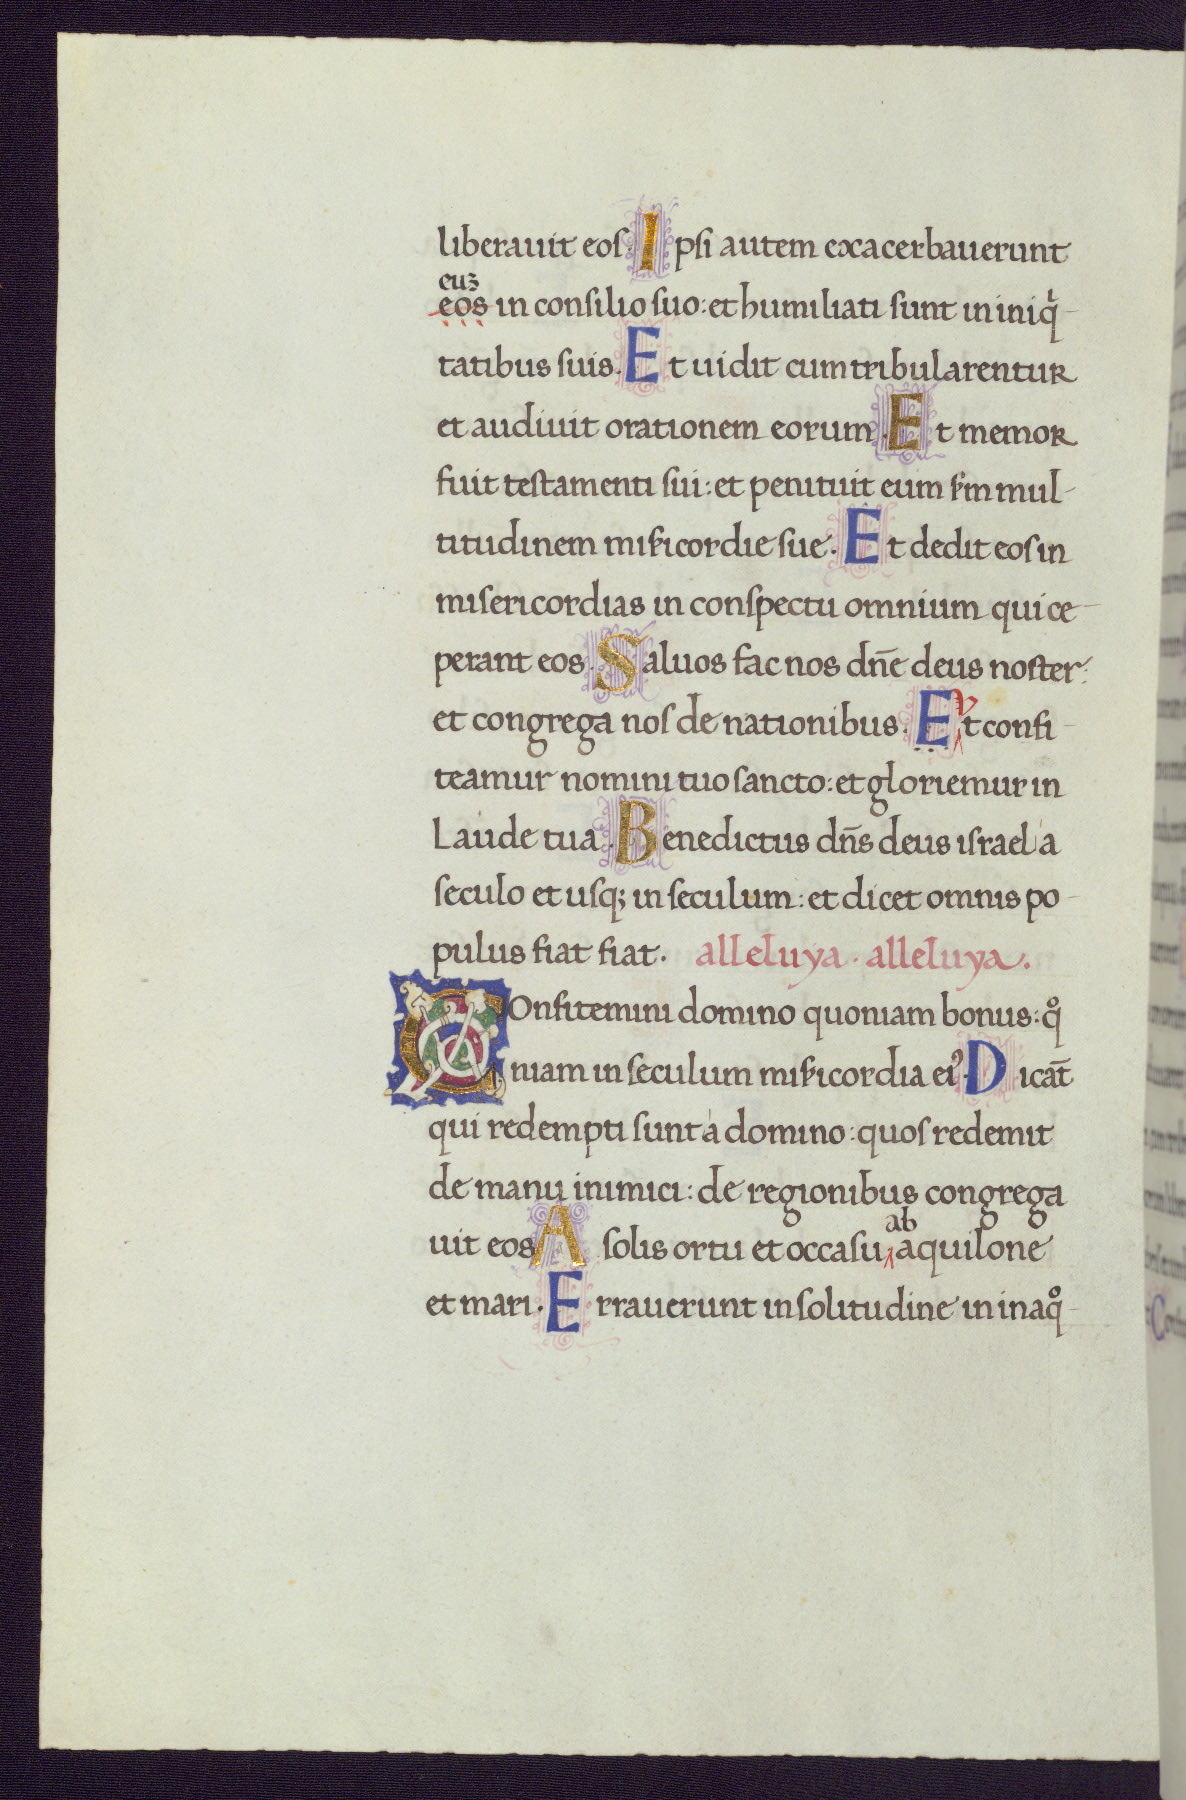 liberauit eos. Ipsi autem exacerbauerunt
euꝫ
eos in consilio suo: et humiliati sunt in iniqͥ-
tatibus suis. Et uidit cum tribularentur
et audiuit orationem eorum. Et memor
fuit testamenti sui: et penituit eum ẜm mul-
titudinem miẜicordie sue. Et dedit eos in
misericordias in conspectu omnium qui ce-
perant eos. Saluos fac nos dn̄e deus noster:
et congrega nos de nationibus. Et confi-
v
teamur nomini tuo sancto: et gloriemur in
Laude tua. Benedictus dn̄s deus israel a
seculo et usq; in seculum: et dicet omnis po-
pulus fiat fiat. alleluya. alleluya.
COnfitemini domino quoniam bonus: qͦ
niam in seculum miẜicordia eiꝰ. Dicāt
qui redempti sunt a domino: quos redemit
de manu inimici: de regionibus congrega
uit eos. A solis ortu et occasu
ab
aquilone
et mari. Errauerunt in solitudine in inaqͦ-